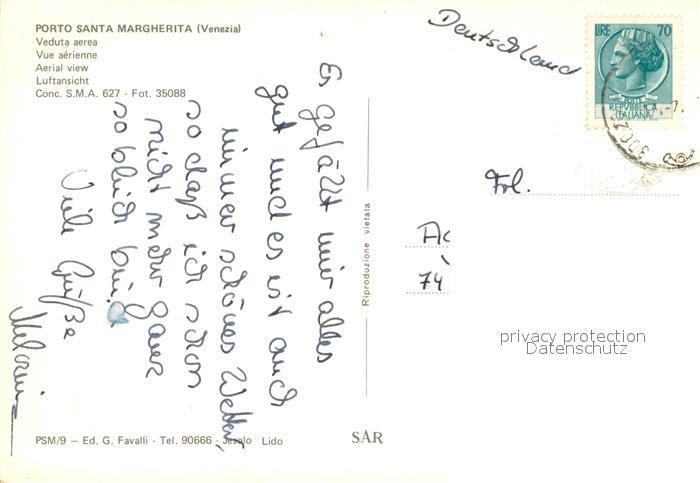 PORTO SANTA MARGHERITA (Venezia)
Veduta aerea
Vue aérienne
Aerial view
Luftansicht
Conc. S.M.A. 627 - Fot. 35088
Es gefällt mir alles
gut und es ist auch
immer schönes Wetter,
so daß ich schon
nicht mehr ganz
so bleich bin.
Viele Grüße
Melanie
Riproduzione vietata
Deutschland
LIRE 70
POSTE
REPVBBLICA
ITALIANA
Frl.
74
privacy protection
Datenschutz
PSM/9 - Ed. G. Favalli - Tel. 90666 - Jesolo Lido
SAR